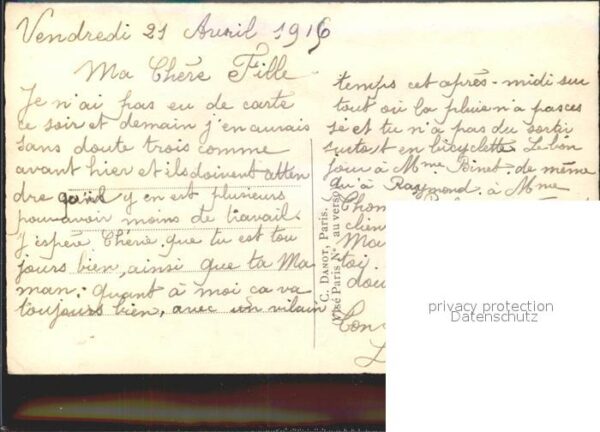 Vendredi 21 Avril 1916
Ma Chère Fille
Je n'ai pas eu de carte
ce soir et demain j'en aurais
sans doute trois comme
avant hier et ils doivent atten
dre qu'il y en est plusieurs
pour avoir moins de travail.
J'espère Chérie, que tu est tou
jours bien, ainsi que ta Ma
man. Quant à moi ca va
toujours bien, avec un vilain
temps cet après-midi sur
tout où la pluie n'a pas ces
sé et tu n'a pas du sortir
surtout en bicyclette. Le bon
jour à Mme Binet de même
qu'à Raymond. à Mme
Thom
clien
Ma
toi
dou
Ton
C. DANOT, Paris.
(Visé Paris N° au verso)
privacy protection
Datenschutz